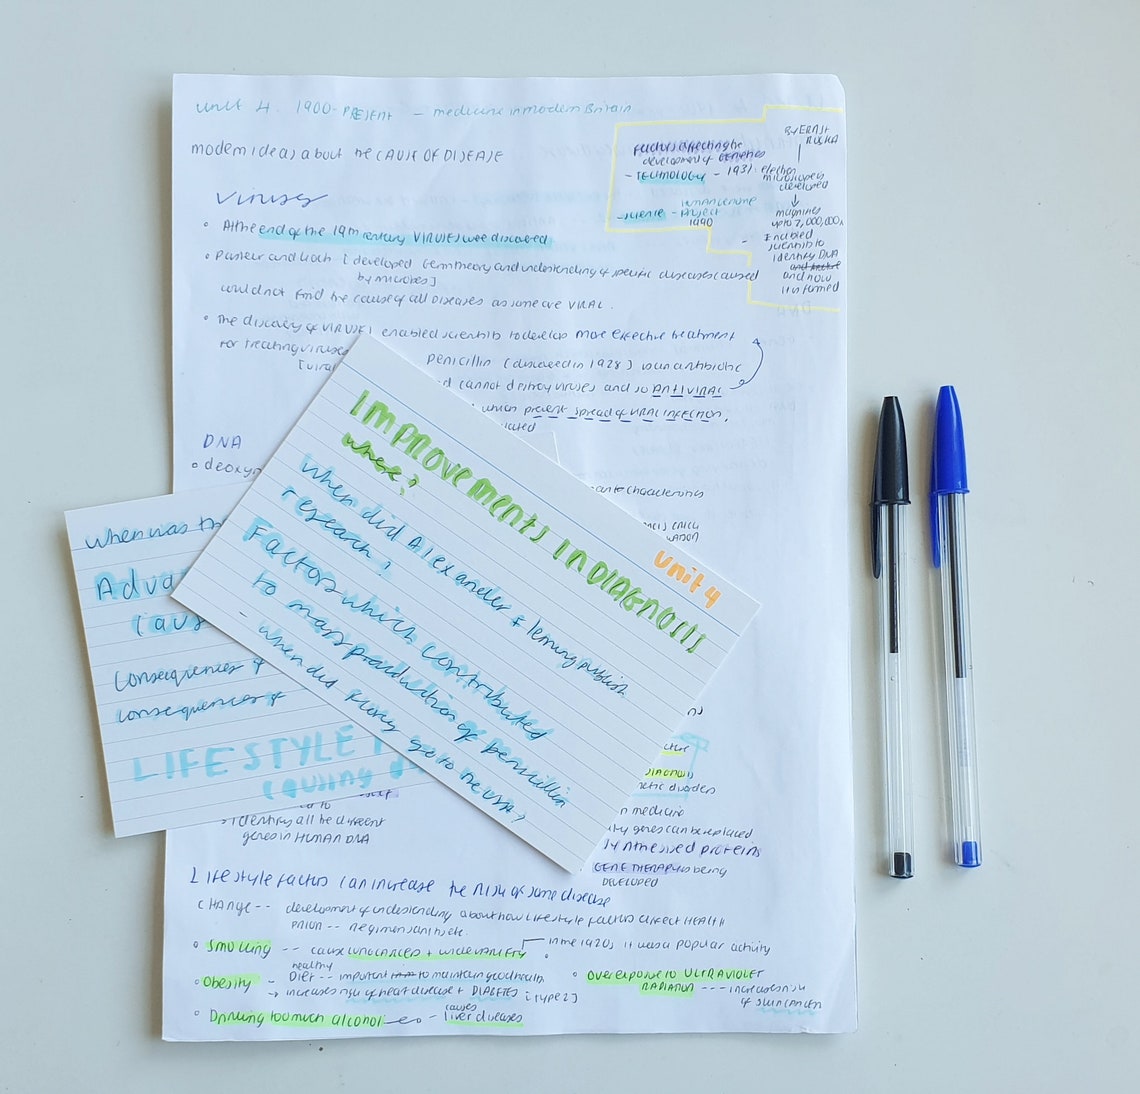 Unit 4. 1900-PRESENT - medicine in modern Britain
modern ideas about the CAUSE OF DISEASE
Viruses
• At the end of the 19th century VIRUSES were discovered
• Pasteur and Koch [developed Germ theory and understanding of specific diseases caused
by microbes]
could not find the cause of all DISEASES as some are VIRAL.
• The discovery of VIRUSES enabled scientists to develop more effective treatment
for treating viruses
penicillin (discovered in 1928) is an antibiotic
cannot destroy viruses and so ANTIVIRAL
which prevent spread of VIRAL INFECTION.
Factors affecting the
development of GENETICS
- TECHNOLOGY - 1931. electron
microscopes
developed
by ERNST
RUSKA
magnifies
up to 2,000,000x
- Enabled
scientists to
identify DNA
and how
it is formed
- science - Human Genome
Project
1990
DNA
• deoxyr
characteristics
IMPROVEMENTS IN DIAGNOSIS
where?
unit 4
When did Alexander fleming publish
research?
Factors which contributed
to mass production of penicillin
- when did Florey go to the USA?
when was th
Adva
caus
Consequences of
consequences of
LIFESTYLE
causing d
DIAGNOSIS
genetic disorders
in medicine
genes can be replaced
synthesised proteins
GENE THERAPY is being
DEVELOPED
identify all the different
genes in HUMAN DNA
Lifestyle factors can increase the risk of some disease
CHANGE -- development of understanding about how lifestyle factors affect HEALTH
PRIOR -- regimen sanitatis etc.
• Smoking -- cause LUNG CANCERS + wide variety
in the 1920s it was a popular activity
• Obesity - healthy
Diet -- important to maintain good health
→ increases risk of heart disease + DIABETES [type 2]
• Over exposure to ULTRAVIOLET
RADIATION --- increases risk
of skin cancer
• Drinking too much alcohol - causes
liver diseases